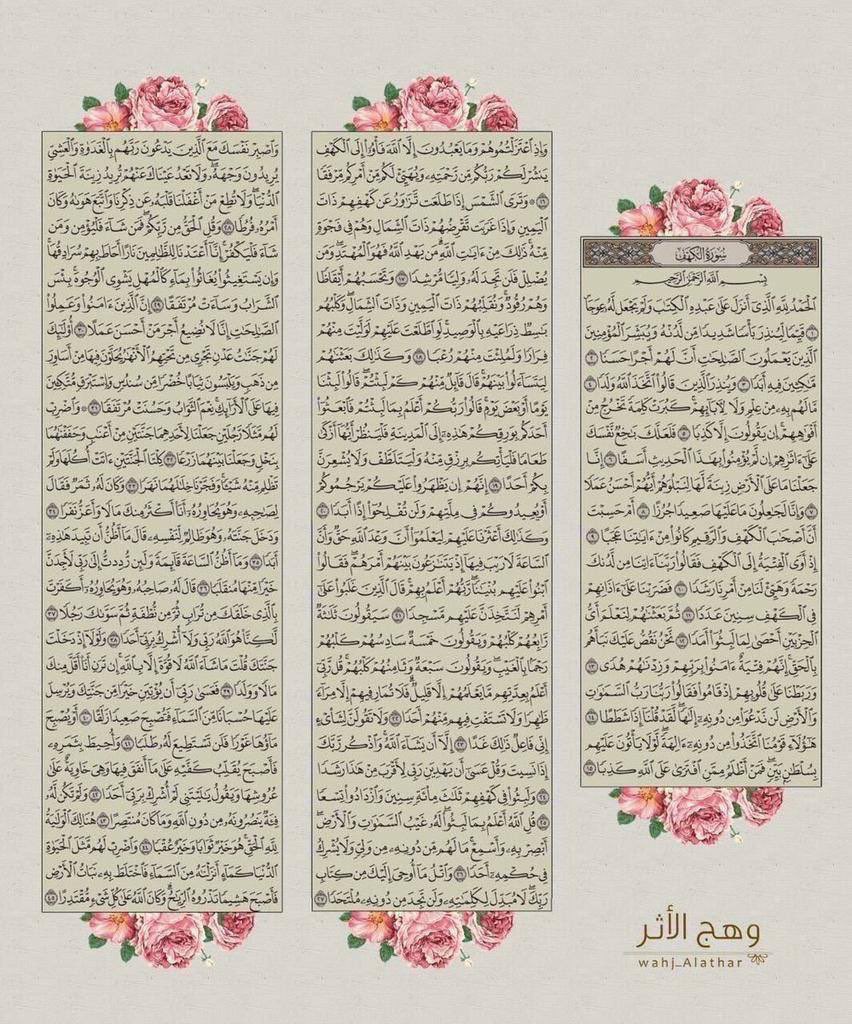 سُورَةُ الكَهْفِ
بِسْمِ اللَّهِ الرَّحْمَٰنِ الرَّحِيمِ
الْحَمْدُ لِلَّهِ الَّذِي أَنزَلَ عَلَىٰ عَبْدِهِ الْكِتَابَ وَلَمْ يَجْعَل لَّهُ عِوَجَا
١ قَيِّمًا لِّيُنذِرَ بَأْسًا شَدِيدًا مِّن لَّدُنْهُ وَيُبَشِّرَ الْمُؤْمِنِينَ
الَّذِينَ يَعْمَلُونَ الصَّالِحَاتِ أَنَّ لَهُمْ أَجْرًا حَسَنًا ٢
مَّاكِثِينَ فِيهِ أَبَدًا ٣ وَيُنذِرَ الَّذِينَ قَالُوا اتَّخَذَ اللَّهُ وَلَدًا ٤
مَّا لَهُم بِهِ مِنْ عِلْمٍ وَلَا لِآبَائِهِمْ كَبُرَتْ كَلِمَةً تَخْرُجُ مِنْ
أَفْوَاهِهِمْ إِن يَقُولُونَ إِلَّا كَذِبًا ٥ فَلَعَلَّكَ بَاخِعٌ نَّفْسَكَ
عَلَىٰ آثَارِهِمْ إِن لَّمْ يُؤْمِنُوا بِهَٰذَا الْحَدِيثِ أَسَفًا ٦ إِنَّا
جَعَلْنَا مَا عَلَى الْأَرْضِ زِينَةً لَّهَا لِنَبْلُوَهُمْ أَيُّهُمْ أَحْسَنُ عَمَلًا
٧ وَإِنَّا لَجَاعِلُونَ مَا عَلَيْهَا صَعِيدًا جُرُزًا ٨ أَمْ حَسِبْتَ
أَنَّ أَصْحَابَ الْكَهْفِ وَالرَّقِيمِ كَانُوا مِنْ آيَاتِنَا عَجَبًا ٩
إِذْ أَوَى الْفِتْيَةُ إِلَى الْكَهْفِ فَقَالُوا رَبَّنَا آتِنَا مِن لَّدُنكَ
رَحْمَةً وَهَيِّئْ لَنَا مِنْ أَمْرِنَا رَشَدًا ١٠ فَضَرَبْنَا عَلَىٰ آذَانِهِمْ
فِي الْكَهْفِ سِنِينَ عَدَدًا ١١ ثُمَّ بَعَثْنَاهُمْ لِنَعْلَمَ أَيُّ
الْحِزْبَيْنِ أَحْصَىٰ لِمَا لَبِثُوا أَمَدًا ١٢ نَّحْنُ نَقُصُّ عَلَيْكَ نَبَأَهُم
بِالْحَقِّ إِنَّهُمْ فِتْيَةٌ آمَنُوا بِرَبِّهِمْ وَزِدْنَاهُمْ هُدًى ١٣
وَرَبَطْنَا عَلَىٰ قُلُوبِهِمْ إِذْ قَامُوا فَقَالُوا رَبُّنَا رَبُّ السَّمَاوَاتِ
وَالْأَرْضِ لَن نَّدْعُوَ مِن دُونِهِ إِلَٰهًا لَّقَدْ قُلْنَا إِذًا شَطَطًا ١٤
هَٰؤُلَاءِ قَوْمُنَا اتَّخَذُوا مِن دُونِهِ آلِهَةً لَّوْلَا يَأْتُونَ عَلَيْهِم
بِسُلْطَانٍ بَيِّنٍ فَمَنْ أَظْلَمُ مِمَّنِ افْتَرَىٰ عَلَى اللَّهِ كَذِبًا ١٥
وَإِذِ اعْتَزَلْتُمُوهُمْ وَمَا يَعْبُدُونَ إِلَّا اللَّهَ فَأْوُوا إِلَى الْكَهْفِ
يَنشُرْ لَكُمْ رَبُّكُم مِّن رَّحْمَتِهِ وَيُهَيِّئْ لَكُم مِّنْ أَمْرِكُم مِّرْفَقًا
١٦ ۞ وَتَرَى الشَّمْسَ إِذَا طَلَعَت تَّزَاوَرُ عَن كَهْفِهِمْ ذَاتَ
الْيَمِينِ وَإِذَا غَرَبَت تَّقْرِضُهُمْ ذَاتَ الشِّمَالِ وَهُمْ فِي فَجْوَةٍ
مِّنْهُ ذَٰلِكَ مِنْ آيَاتِ اللَّهِ مَن يَهْدِ اللَّهُ فَهُوَ الْمُهْتَدِ وَمَن
يُضْلِلْ فَلَن تَجِدَ لَهُ وَلِيًّا مُّرْشِدًا ١٧ وَتَحْسَبُهُمْ أَيْقَاظًا
وَهُمْ رُقُودٌ وَنُقَلِّبُهُمْ ذَاتَ الْيَمِينِ وَذَاتَ الشِّمَالِ وَكَلْبُهُم
بَاسِطٌ ذِرَاعَيْهِ بِالْوَصِيدِ لَوِ اطَّلَعْتَ عَلَيْهِمْ لَوَلَّيْتَ مِنْهُمْ
فِرَارًا وَلَمُلِئْتَ مِنْهُمْ رُعْبًا ١٨ وَكَذَٰلِكَ بَعَثْنَاهُمْ
لِيَتَسَاءَلُوا بَيْنَهُمْ قَالَ قَائِلٌ مِّنْهُمْ كَمْ لَبِثْتُمْ قَالُوا لَبِثْنَا
يَوْمًا أَوْ بَعْضَ يَوْمٍ قَالُوا رَبُّكُمْ أَعْلَمُ بِمَا لَبِثْتُمْ فَابْعَثُوا
أَحَدَكُم بِوَرِقِكُمْ هَٰذِهِ إِلَى الْمَدِينَةِ فَلْيَنظُرْ أَيُّهَا أَزْكَىٰ
طَعَامًا فَلْيَأْتِكُم بِرِزْقٍ مِّنْهُ وَلْيَتَلَطَّفْ وَلَا يُشْعِرَنَّ
بِكُمْ أَحَدًا ١٩ إِنَّهُمْ إِن يَظْهَرُوا عَلَيْكُمْ يَرْجُمُوكُمْ
أَوْ يُعِيدُوكُمْ فِي مِلَّتِهِمْ وَلَن تُفْلِحُوا إِذًا أَبَدًا ٢٠
وَكَذَٰلِكَ أَعْثَرْنَا عَلَيْهِمْ لِيَعْلَمُوا أَنَّ وَعْدَ اللَّهِ حَقٌّ وَأَنَّ
السَّاعَةَ لَا رَيْبَ فِيهَا إِذْ يَتَنَازَعُونَ بَيْنَهُمْ أَمْرَهُمْ فَقَالُوا
ابْنُوا عَلَيْهِم بُنْيَانًا رَّبُّهُمْ أَعْلَمُ بِهِمْ قَالَ الَّذِينَ غَلَبُوا عَلَىٰ
أَمْرِهِمْ لَنَتَّخِذَنَّ عَلَيْهِم مَّسْجِدًا ٢١ سَيَقُولُونَ ثَلَاثَةٌ
رَّابِعُهُمْ كَلْبُهُمْ وَيَقُولُونَ خَمْسَةٌ سَادِسُهُمْ كَلْبُهُمْ
رَجْمًا بِالْغَيْبِ وَيَقُولُونَ سَبْعَةٌ وَثَامِنُهُمْ كَلْبُهُمْ قُل رَّبِّي
أَعْلَمُ بِعِدَّتِهِم مَّا يَعْلَمُهُمْ إِلَّا قَلِيلٌ فَلَا تُمَارِ فِيهِمْ إِلَّا مِرَاءً
ظَاهِرًا وَلَا تَسْتَفْتِ فِيهِم مِّنْهُمْ أَحَدًا ٢٢ وَلَا تَقُولَنَّ لِشَيْءٍ
إِنِّي فَاعِلٌ ذَٰلِكَ غَدًا ٢٣ إِلَّا أَن يَشَاءَ اللَّهُ وَاذْكُر رَّبَّكَ
إِذَا نَسِيتَ وَقُلْ عَسَىٰ أَن يَهْدِيَنِ رَبِّي لِأَقْرَبَ مِنْ هَٰذَا رَشَدًا
٢٤ وَلَبِثُوا فِي كَهْفِهِمْ ثَلَاثَ مِائَةٍ سِنِينَ وَازْدَادُوا تِسْعًا
٢٥ قُلِ اللَّهُ أَعْلَمُ بِمَا لَبِثُوا لَهُ غَيْبُ السَّمَاوَاتِ وَالْأَرْضِ
أَبْصِرْ بِهِ وَأَسْمِعْ مَا لَهُم مِّن دُونِهِ مِن وَلِيٍّ وَلَا يُشْرِكُ
فِي حُكْمِهِ أَحَدًا ٢٦ وَاتْلُ مَا أُوحِيَ إِلَيْكَ مِن كِتَابِ
رَبِّكَ لَا مُبَدِّلَ لِكَلِمَاتِهِ وَلَن تَجِدَ مِن دُونِهِ مُلْتَحَدًا ٢٧
وَاصْبِرْ نَفْسَكَ مَعَ الَّذِينَ يَدْعُونَ رَبَّهُم بِالْغَدَاةِ وَالْعَشِيِّ
يُرِيدُونَ وَجْهَهُ وَلَا تَعْدُ عَيْنَاكَ عَنْهُمْ تُرِيدُ زِينَةَ الْحَيَاةِ
الدُّنْيَا وَلَا تُطِعْ مَنْ أَغْفَلْنَا قَلْبَهُ عَن ذِكْرِنَا وَاتَّبَعَ هَوَاهُ وَكَانَ
أَمْرُهُ فُرُطًا ٢٨ وَقُلِ الْحَقُّ مِن رَّبِّكُمْ فَمَن شَاءَ فَلْيُؤْمِن وَمَن
شَاءَ فَلْيَكْفُرْ إِنَّا أَعْتَدْنَا لِلظَّالِمِينَ نَارًا أَحَاطَ بِهِمْ سُرَادِقُهَا
وَإِن يَسْتَغِيثُوا يُغَاثُوا بِمَاءٍ كَالْمُهْلِ يَشْوِي الْوُجُوهَ بِئْسَ
الشَّرَابُ وَسَاءَتْ مُرْتَفَقًا ٢٩ إِنَّ الَّذِينَ آمَنُوا وَعَمِلُوا
الصَّالِحَاتِ إِنَّا لَا نُضِيعُ أَجْرَ مَنْ أَحْسَنَ عَمَلًا ٣٠ أُولَٰئِكَ
لَهُمْ جَنَّاتُ عَدْنٍ تَجْرِي مِن تَحْتِهِمُ الْأَنْهَارُ يُحَلَّوْنَ فِيهَا مِنْ أَسَاوِرَ
مِن ذَهَبٍ وَيَلْبَسُونَ ثِيَابًا خُضْرًا مِّن سُندُسٍ وَإِسْتَبْرَقٍ مُّتَّكِئِينَ
فِيهَا عَلَى الْأَرَائِكِ نِعْمَ الثَّوَابُ وَحَسُنَتْ مُرْتَفَقًا ٣١ ۞ وَاضْرِبْ
لَهُم مَّثَلًا رَّجُلَيْنِ جَعَلْنَا لِأَحَدِهِمَا جَنَّتَيْنِ مِنْ أَعْنَابٍ وَحَفَفْنَاهُمَا
بِنَخْلٍ وَجَعَلْنَا بَيْنَهُمَا زَرْعًا ٣٢ كِلْتَا الْجَنَّتَيْنِ آتَتْ أُكُلَهَا وَلَمْ
تَظْلِم مِّنْهُ شَيْئًا وَفَجَّرْنَا خِلَالَهُمَا نَهَرًا ٣٣ وَكَانَ لَهُ ثَمَرٌ فَقَالَ
لِصَاحِبِهِ وَهُوَ يُحَاوِرُهُ أَنَا أَكْثَرُ مِنكَ مَالًا وَأَعَزُّ نَفَرًا ٣٤
وَدَخَلَ جَنَّتَهُ وَهُوَ ظَالِمٌ لِّنَفْسِهِ قَالَ مَا أَظُنُّ أَن تَبِيدَ هَٰذِهِ
أَبَدًا ٣٥ وَمَا أَظُنُّ السَّاعَةَ قَائِمَةً وَلَئِن رُّدِدتُّ إِلَىٰ رَبِّي لَأَجِدَنَّ
خَيْرًا مِّنْهَا مُنقَلَبًا ٣٦ قَالَ لَهُ صَاحِبُهُ وَهُوَ يُحَاوِرُهُ أَكَفَرْتَ
بِالَّذِي خَلَقَكَ مِن تُرَابٍ ثُمَّ مِن نُّطْفَةٍ ثُمَّ سَوَّاكَ رَجُلًا ٣٧
لَّٰكِنَّا هُوَ اللَّهُ رَبِّي وَلَا أُشْرِكُ بِرَبِّي أَحَدًا ٣٨ وَلَوْلَا إِذْ دَخَلْتَ
جَنَّتَكَ قُلْتَ مَا شَاءَ اللَّهُ لَا قُوَّةَ إِلَّا بِاللَّهِ إِن تَرَنِ أَنَا أَقَلَّ مِنكَ
مَالًا وَوَلَدًا ٣٩ فَعَسَىٰ رَبِّي أَن يُؤْتِيَنِ خَيْرًا مِّن جَنَّتِكَ وَيُرْسِلَ
عَلَيْهَا حُسْبَانًا مِّنَ السَّمَاءِ فَتُصْبِحَ صَعِيدًا زَلَقًا ٤٠ أَوْ يُصْبِحَ
مَاؤُهَا غَوْرًا فَلَن تَسْتَطِيعَ لَهُ طَلَبًا ٤١ وَأُحِيطَ بِثَمَرِهِ
فَأَصْبَحَ يُقَلِّبُ كَفَّيْهِ عَلَىٰ مَا أَنفَقَ فِيهَا وَهِيَ خَاوِيَةٌ عَلَىٰ
عُرُوشِهَا وَيَقُولُ يَا لَيْتَنِي لَمْ أُشْرِكْ بِرَبِّي أَحَدًا ٤٢ وَلَمْ تَكُن لَّهُ
فِئَةٌ يَنصُرُونَهُ مِن دُونِ اللَّهِ وَمَا كَانَ مُنتَصِرًا ٤٣ هُنَالِكَ الْوَلَايَةُ
لِلَّهِ الْحَقِّ هُوَ خَيْرٌ ثَوَابًا وَخَيْرٌ عُقْبًا ٤٤ وَاضْرِبْ لَهُم مَّثَلَ الْحَيَاةِ
الدُّنْيَا كَمَاءٍ أَنزَلْنَاهُ مِنَ السَّمَاءِ فَاخْتَلَطَ بِهِ نَبَاتُ الْأَرْضِ
فَأَصْبَحَ هَشِيمًا تَذْرُوهُ الرِّيَاحُ وَكَانَ اللَّهُ عَلَىٰ كُلِّ شَيْءٍ مُّقْتَدِرًا ٤٥
وهج الأثر
wahj_Alathar